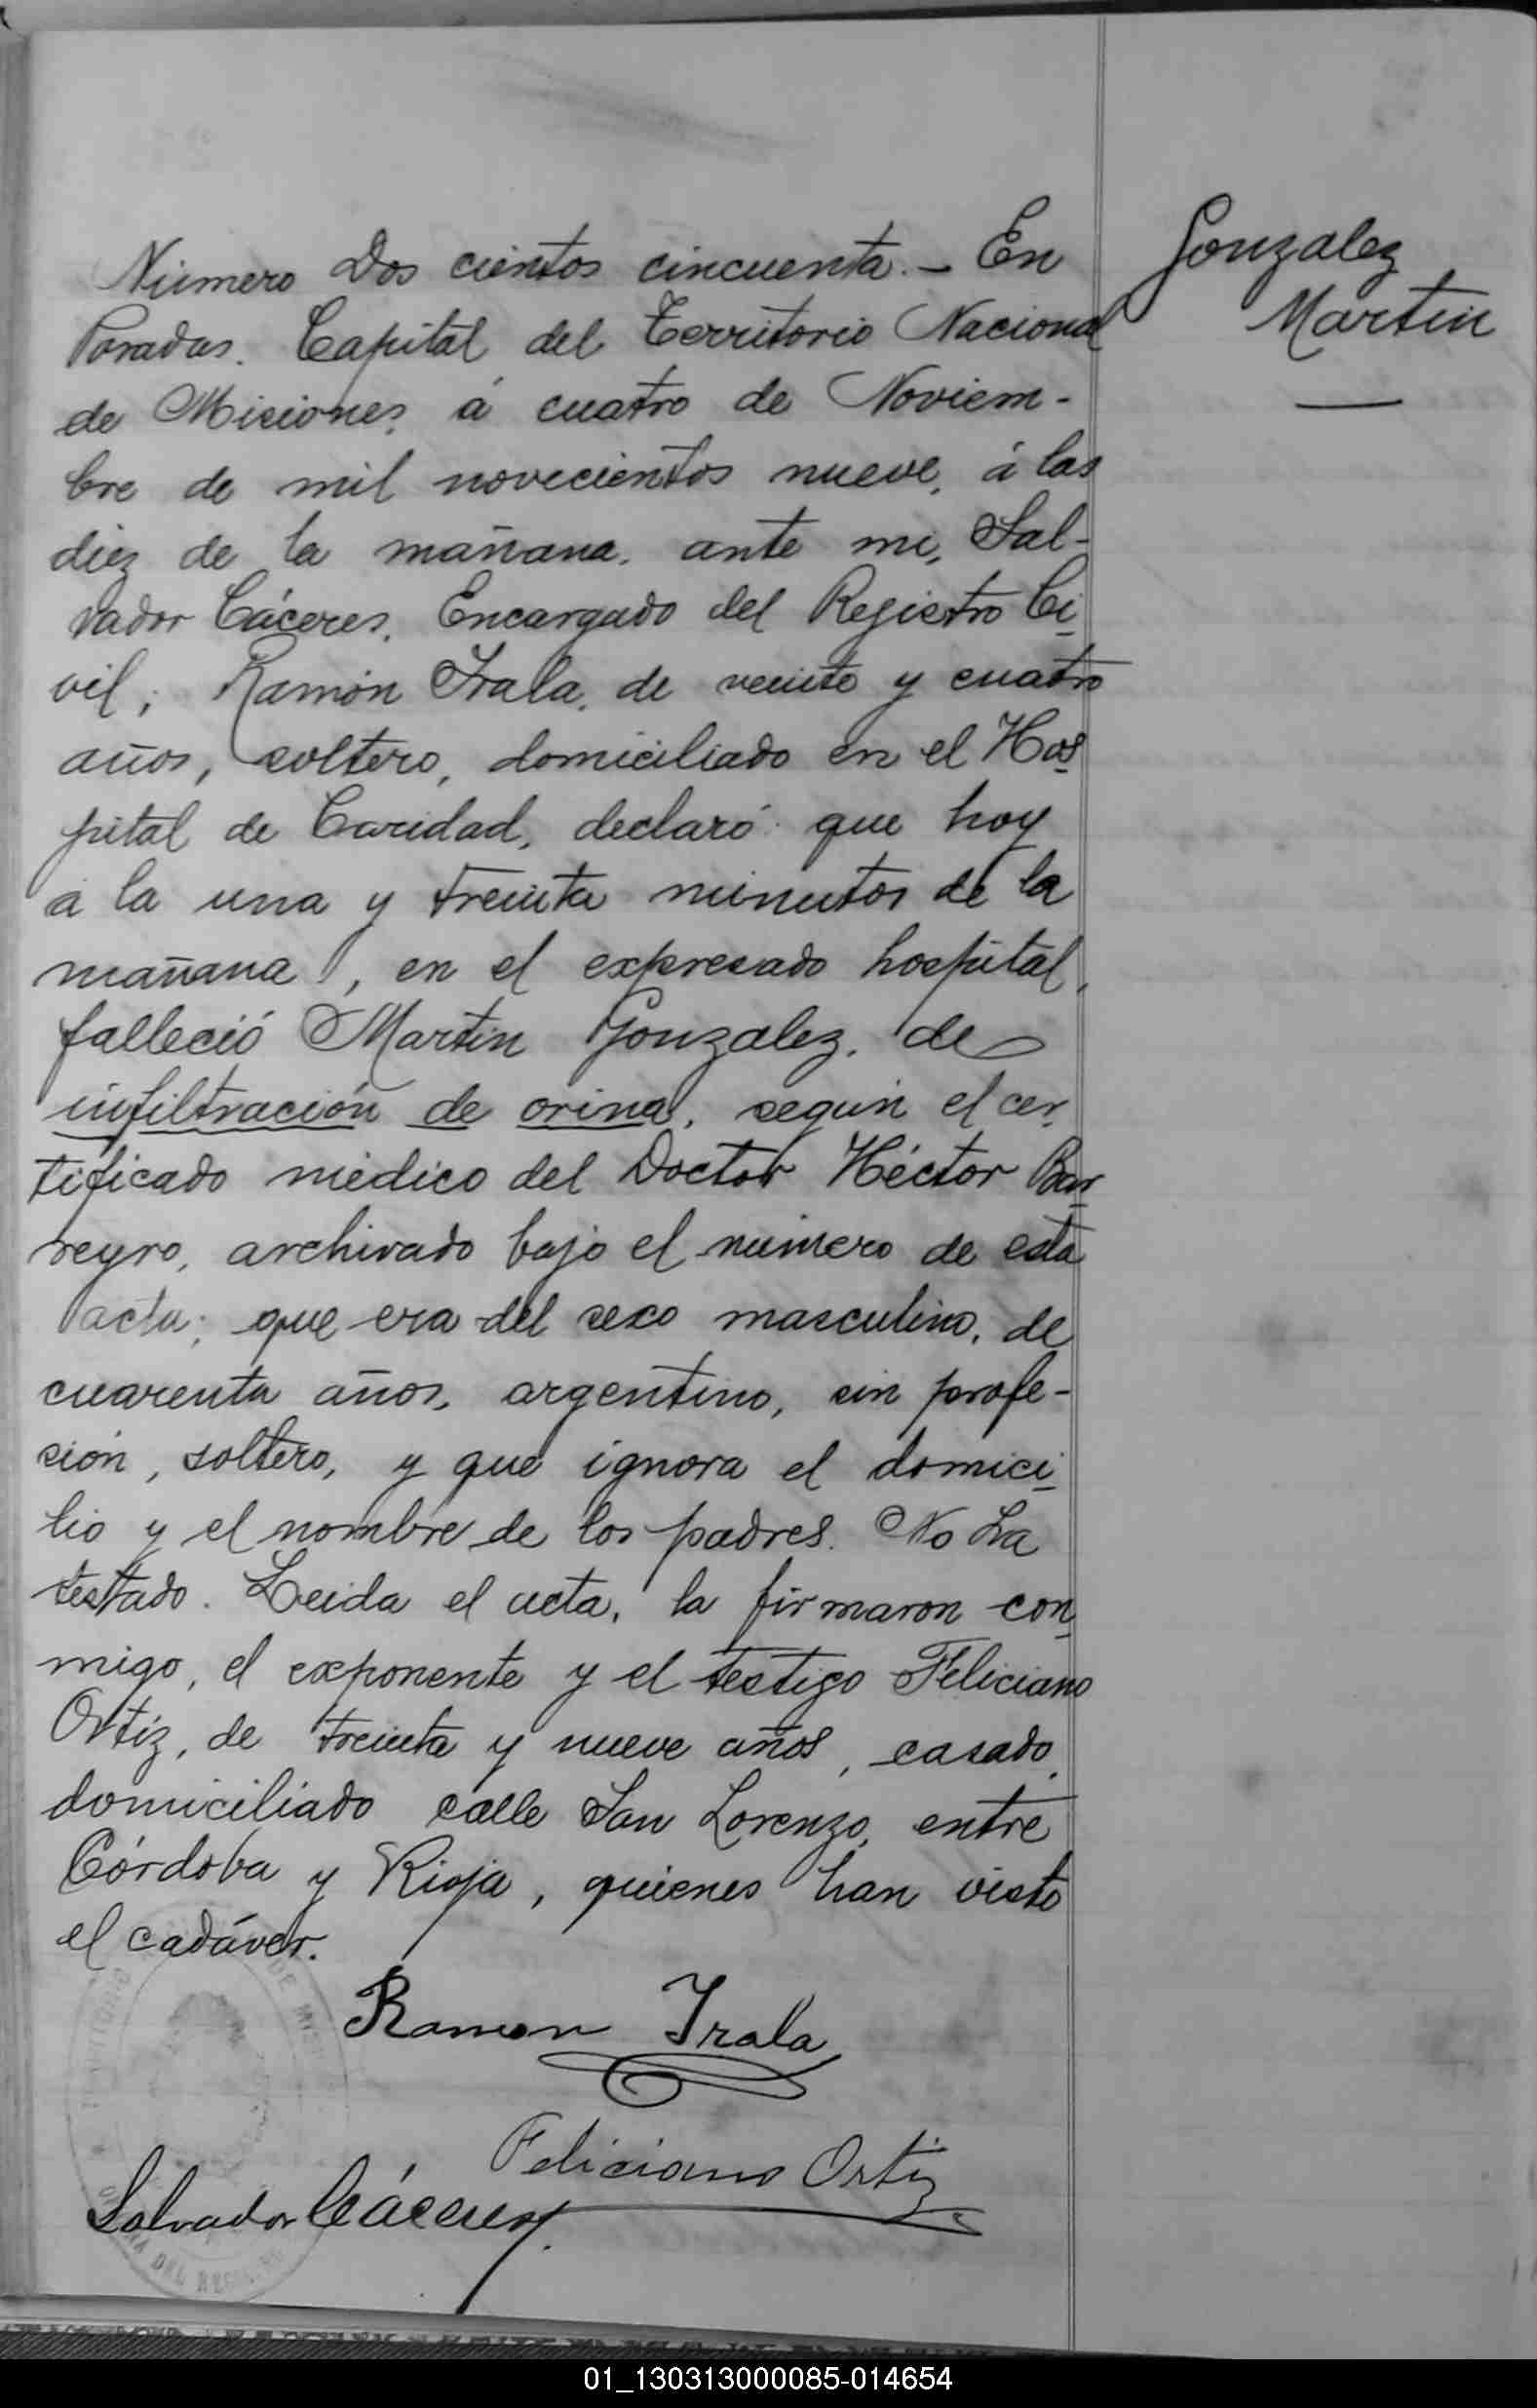 Gonzalez
Martin
Número Dos cientos cincuenta.- En
Posadas. Capital del Territorio Nacional
de Misiones, á cuatro de Noviem-
bre de mil novecientos nueve, á las
diez de la mañana, ante mi, Sal-
vador Cáceres, Encargado del Registro Ci
vil; Ramón Irala, de veinte y cuatro
años, soltero, domiciliado en el Hos
pital de Caridad, declaró: que hoy
á la una y treinta minutos de la
mañana, en el expresado hospital,
falleció Martin Gonzalez, de
infiltración de orina, según el cer
tificado médico del Doctor Héctor Bar
reyro, archivado bajo el número de esta
acta; que era del sexo masculino, de
cuarenta años, argentino, sin profe-
sión, soltero, y que ignora el domici
lio y el nombre de los padres. No ha
testado. Leida el acta, la firmaron con
migo, el exponente y el testigo Feliciano
Ortiz, de treinta y nueve años, casado,
domiciliado calle San Lorenzo, entre
Córdoba y Rioja, quienes han visto
el cadáver.
Ramon Irala
Feliciano Ortiz
Salvador Cáceres
01_130313000085-014654